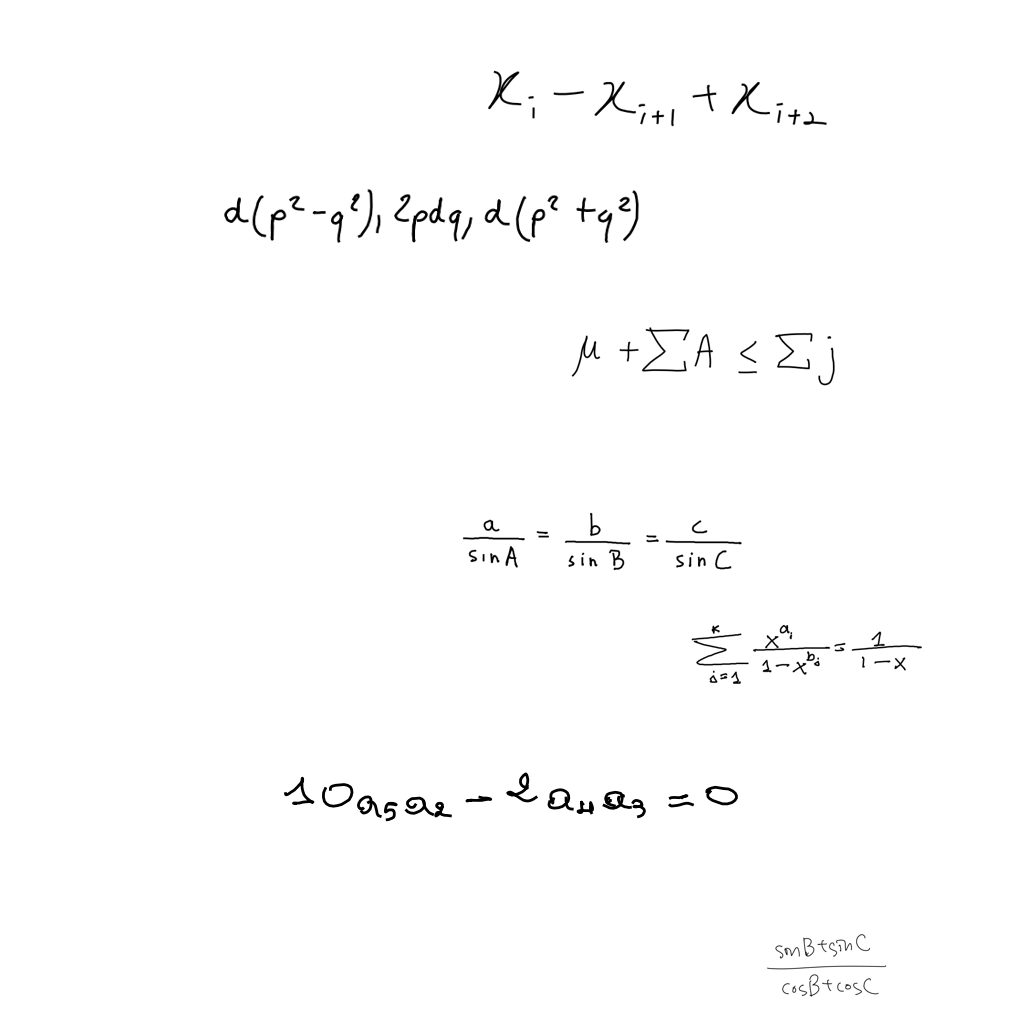 x_i - x_{i+1} + x_{i+2}
d(p^2-q^2), 2pdq, d(p^2+q^2)
\mu + \sum A \leq \sum j
\frac{a}{\sin A} = \frac{b}{\sin B} = \frac{c}{\sin C}
\sum_{i=1}^{k} \frac{x^{a_i}}{1-x^{b_i}} = \frac{1}{1-x}
10a_5a_2 - 2a_4a_3 = 0
\frac{\sin B + \sin C}{\cos B + \cos C}